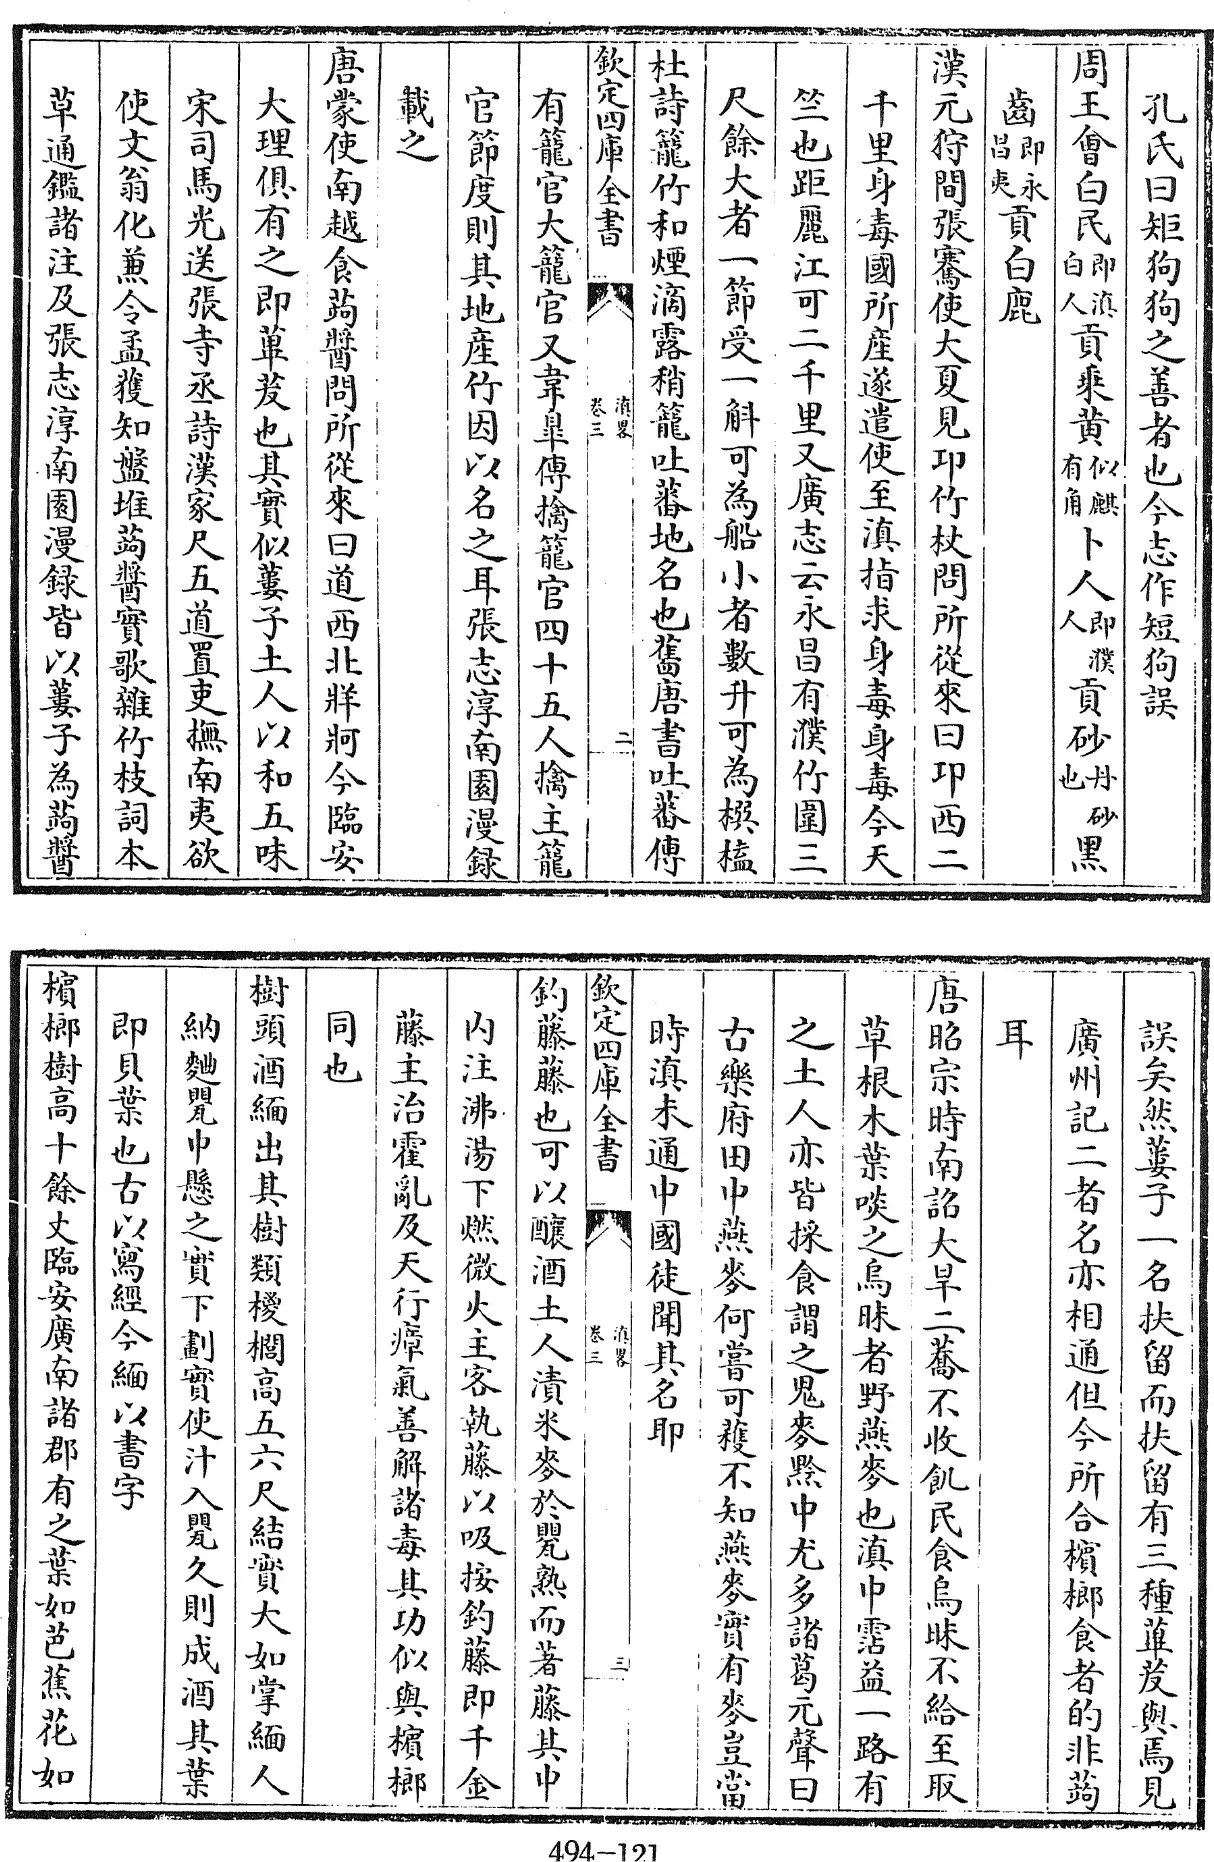 孔氏曰矩狗狗之善者也今志作短狗誤
周王會白民即滇白人貢乘黄似麒有角卜人即濮人貢砂丹砂也黑
齒即永昌夷貢白鹿
漢元狩間張騫使大夏見卭竹杖問所從來曰卭西二
千里身毒國所産遂遣使至滇指求身毒身毒今天
竺也距麗江可二千里又廣志云永昌有濮竹圍三
尺餘大者一節受一斛可為船小者數升可為椇榼
杜詩籠竹和煙滴露稍籠吐蕃地名也舊唐書吐蕃傳
欽定四庫全書
滇畧
卷三
二
有籠官大籠官又韋臯傳擒籠官四十五人擒主籠
官節度則其地産竹因以名之耳張志淳南園漫録
載之
唐蒙使南越食蒟醬問所從來曰道西北牂牁今臨安
大理俱有之即蓽茇也其實似蔞子土人以和五味
宋司馬光送張寺丞詩漢家尺五道置吏撫南夷欲
使文翁化兼令孟獲知盤堆蒟醬實歌雜竹枝詞本
草通鑑諸注及張志淳南園漫録皆以蔞子為蒟醬
誤矣然蔞子一名扶留而扶留有三種蓽茇與焉見
廣州記二者名亦相通但今所合檳榔食者的非蒟
耳
唐昭宗時南詔大旱二蕎不收飢民食烏昧不給至取
草根木葉啖之烏昧者野燕麥也滇中霑益一路有
之土人亦皆採食謂之鬼麥黔中尤多諸葛元聲曰
古樂府田中燕麥何嘗可穫不知燕麥實有麥豈當
時滇未通中國徒聞其名耶
欽定四庫全書
滇畧
卷三
三
釣藤藤也可以釀酒土人漬米麥於甖熟而著藤其中
内注沸湯下燃微火主客執藤以吸按釣藤即千金
藤主治霍亂及天行瘴氣善解諸毒其功似與檳榔
同也
樹頭酒緬出其樹類椶櫚高五六尺結實大如掌緬人
納麯甖中懸之實下劃實使汁入甖久則成酒其葉
即貝葉也古以寫經今緬以書字
檳榔樹高十餘丈臨安廣南諸郡有之葉如芭蕉花如
494-121